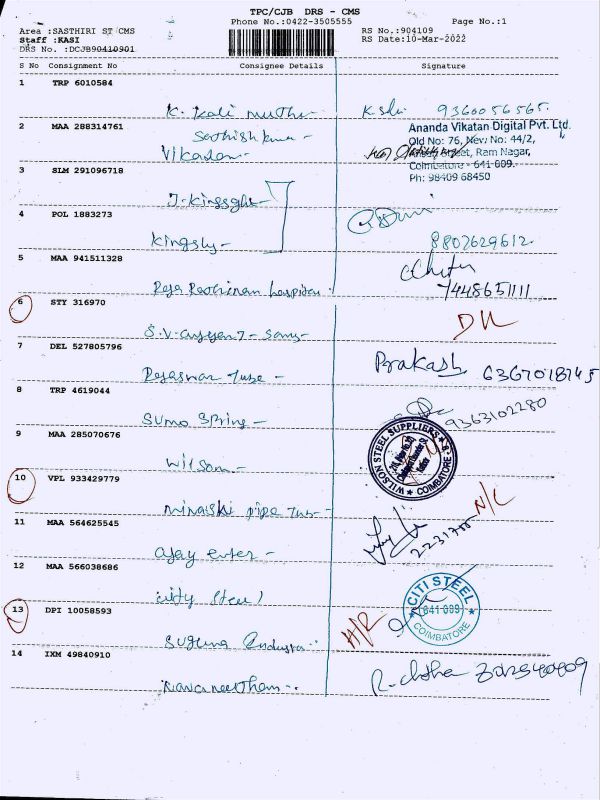 TPC/CJB DRS - CMS
Phone No.:0422-3505555 Page No.:1
Area :SASTHIRI ST CMS RS No.:904109
Staff :KASI RS Date:10-Mar-2022
DRS No. :DCJB90410901
S No Consignment No Consignee Details Signature
1 TRP 6010584
K. Kali Muthu 9360056565.
2 MAA 288314761
Sathish kuma - Ananda Vikatan Digital Pvt. Ltd.
Vikadan - Old No: 76, New No: 44/2,
Street, Ram Nagar,
Coimbatore - 641 009.
Ph: 98409 68450
3 SLM 291096718
4 POL 1883273
Kingsly - 8807629612.
5 MAA 941511328
hospital 7448651111
6 STY 316970
7 DEL 527805796
Prakash 6367018745
8 TRP 4619044
Sumo Spring - 9363102280
9 MAA 285070676
Wilson - WILSON STEEL SUPPLIERS
COIMBATORE
10 VPL 933429779
pipe N/C
11 MAA 564625545
ajay enter - 2231755
12 MAA 566038686
City Steel CITI STEEL
641 009
COIMBATORE
13 DPI 10058593
Suguna H/R
14 IXM 49840910
Navaneetham -